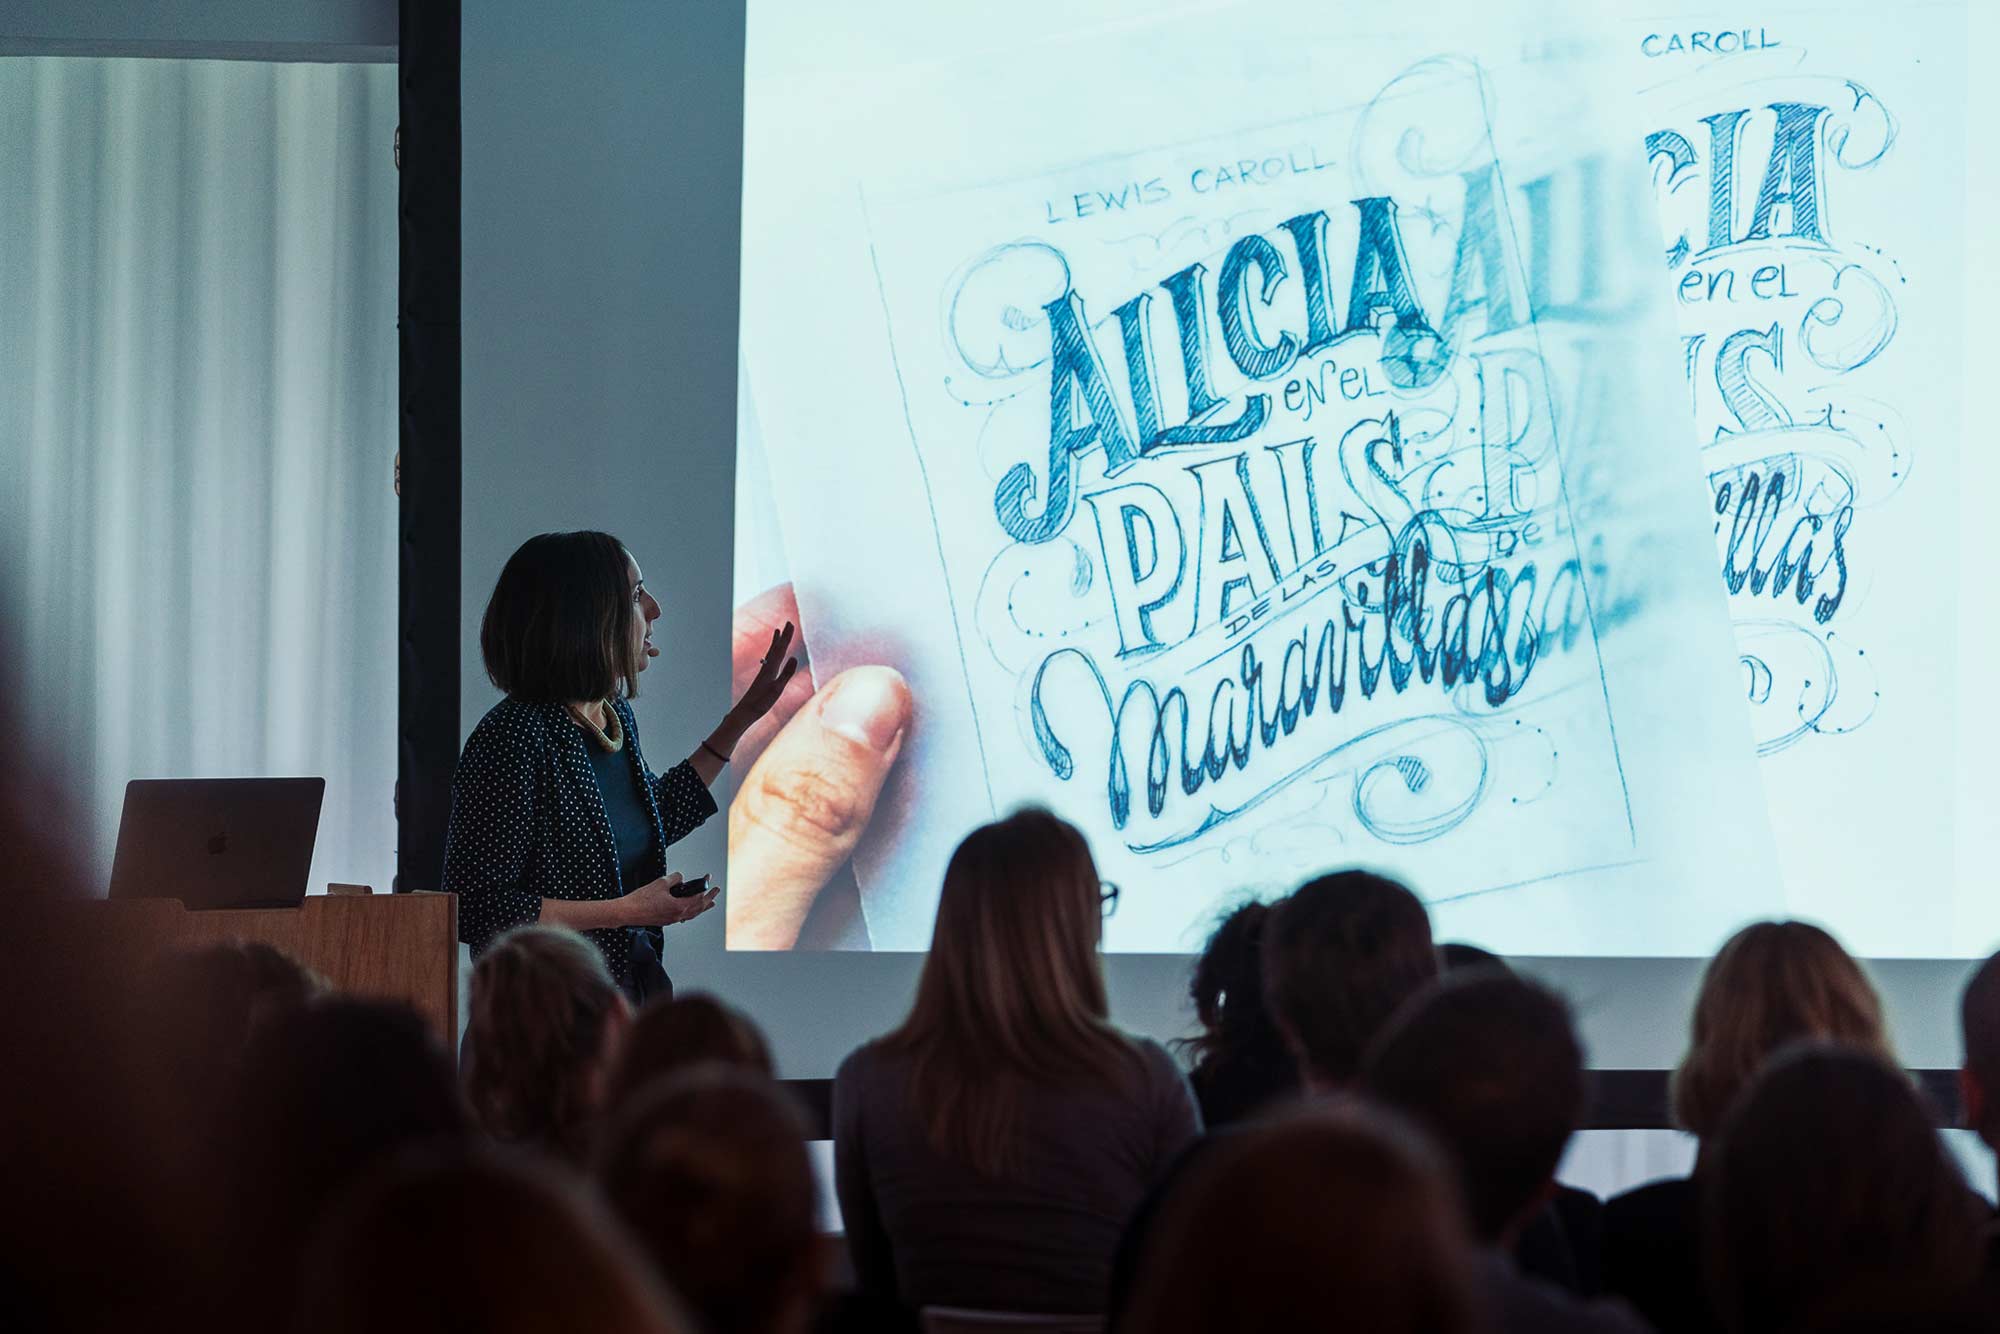 LEWIS CAROLL
ALICIA
eN eL
PAIS
DE LAS
Maravillas
CAROLL
CIA
en eL
S
illas